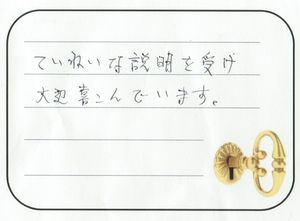 ていねいな説明を受け
大変喜こんでいます。